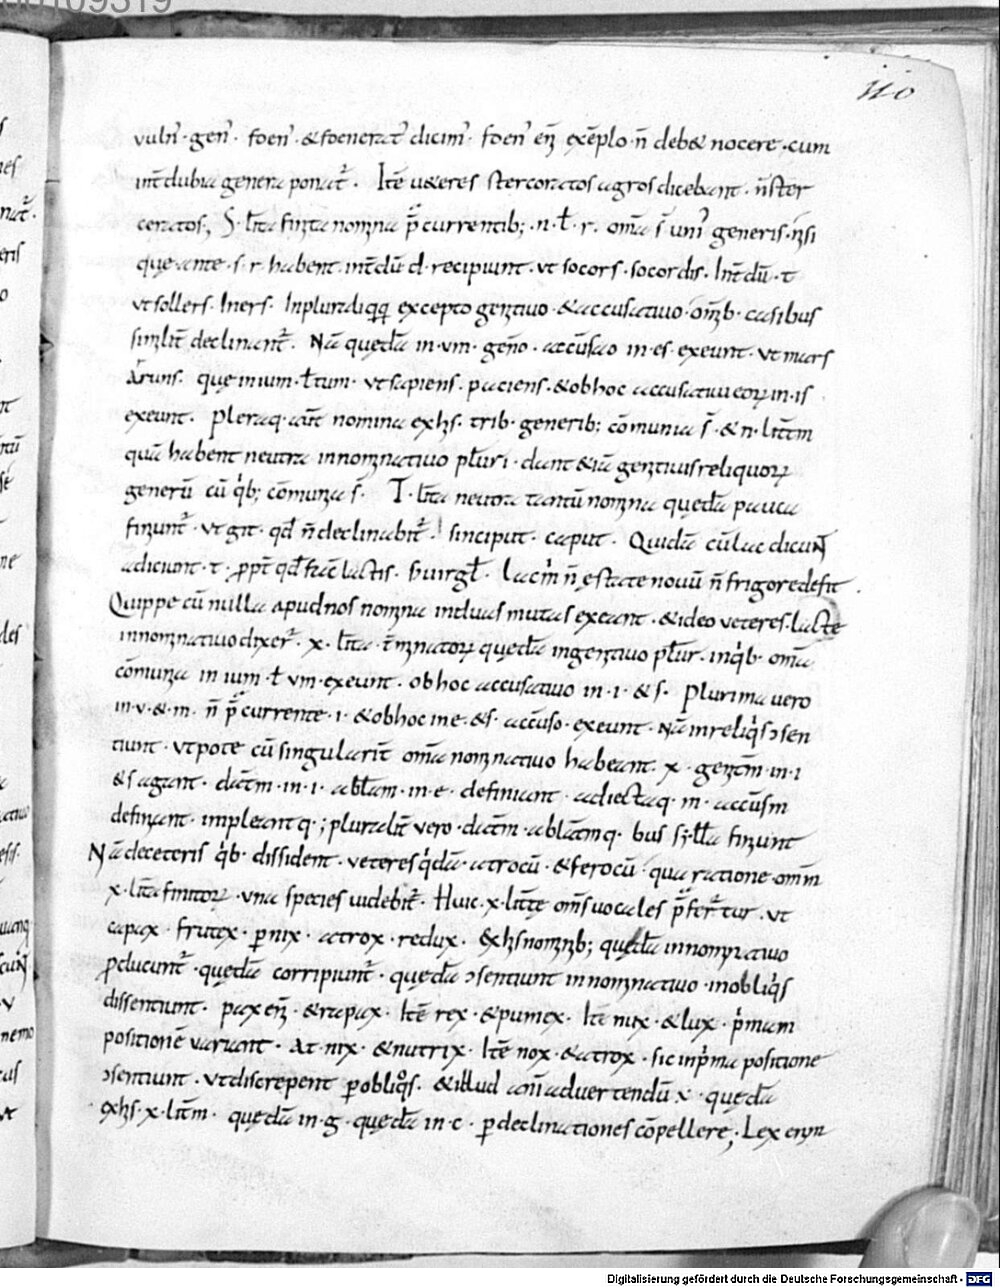 110
vuln̄· gen̄· foen̄· &foenerat̄ dicim̄· foen̄ em̄ exēplo· n̄ deb& nocere· cum
int̄ dubia genera ponat̄· Itē u&eres stercoratos agros dicebant· n̄ ster
ceratos; S· lr̄a finita nomina p̄currentib; ·n· ł· r· om̄a s̄ uni᾽ generis· nisi
que ante ·s· r· habent· int̄dū d· recipiunt· vt socors· socordis· Int̄dū· t
vt sollers· Iners· In pluraliqq; excepto genitiuo &accusatiuo· om̄ib· casibus
similit̄ declinant̄· Nā quędā in ·vm· geńo· accusao in ·es· exeunt· vt mars
Aruns· que in ium· ł tum· vt sapiens· paciens· &ob hoc accusatiui eoꝝ in ·is·
exeunt· Pleraq· aūt nomina ex his· trib· generib; cōmunia s̄· & n· litt̄m
quā habent neutra in nominatiuo plˉuri· dant &iā genitiuis reliquoꝝ
generū cū qib; cōmunia s̄· T· lr̄a neutra tantū nomina quędā pauca
finiunt̄· vt git· qđ n̄ declinabit̄· sinciput· caput· Quidā cū lac dicunt̄
adiciunt· t· ꝓpt̄ qđ facit lactis· s; uirgł· Lac m̄ n̄ ęstate nouū n̄ frigore defit·
Quippe cū nulla apud nos nomina in duas mutas exeant· &ideo veteres· lacte
in nominatiuo dixer̄· x· lr̄a t̄minatoꝝ quędā in genitiuo plˉur· in qib· om̄a
cōmunia in ium· ł vm· exeunt· ob hoc accusatiuo in· i· & s· Plurima vero
in· v· & m· n̄ p̄currente· i· &ob hoc in e· &s· accuso· exeunt· Nā in reliqis ↄsen
tiunt· vtpote cū singularit̄ om̄a nominatiuo habeant· x· genit̄m· in· i
& s agant· dat̄m· in· i· ablāt̄m· in· e· definiant adiectaq· m· accusm
definiant· impleantq·; pluralit̄ vero· dat̄m· ablat̄mq· bus syłła finiunt
Nā de ceteris qib· dissident· veteres qidā atrocū· &ferocū· qua ratione om̄iū
x· lr̄a finitoꝝ· vna species uidebit̄· Huic· x· litt̄ę om̄s uocales p̄fer̄tur· vt
capax· frutex· pnix· atrox· redux· Ex his nominib; quędā in nominatiuo
ꝓducunt̄· quędā corripiunt̄· quędā ↄsentiunt in nominatiuo· in obliqis
dissentiunt· pax em̄ &rapax· Itē rex· &pumex· Itē nux· &lux· pimam
positionē variant· At nix· &nutrix· Itē nox· &atrox· sic in pima positione
ↄsentiunt· vt discrepent p obliqos· &illud animaduertendū x· quędā
ex his· x· litt̄m· quędā in· g· quędā in· c· p declinationes cōpellere; Lex enim
Digitalisierung gefördert durch die Deutsche Forschungsgemeinschaft - DFG